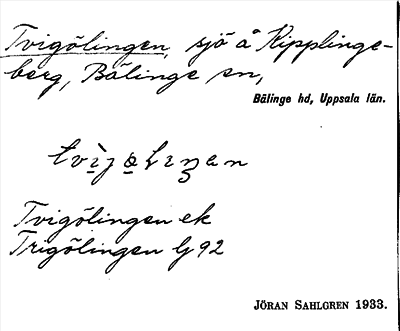 Tvigölingen, sjö å Kipplinge-
berg, Bälinge sn,
Bälinge hd, Uppsala län.
Tvigölingen ek
Trigölingen Lj 92
JÖRAN SAHLGREN 1933.